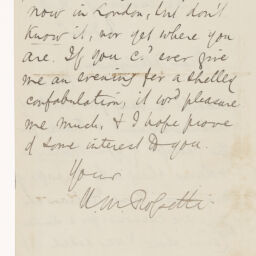 now in London, but don't
know it, nor yet where you
are. If you cd. ever give
me an evening for a
confabulation, it wod. pleasure
me much, & I hope prove
of some interest to you.
Your
W. M. Rossetti.